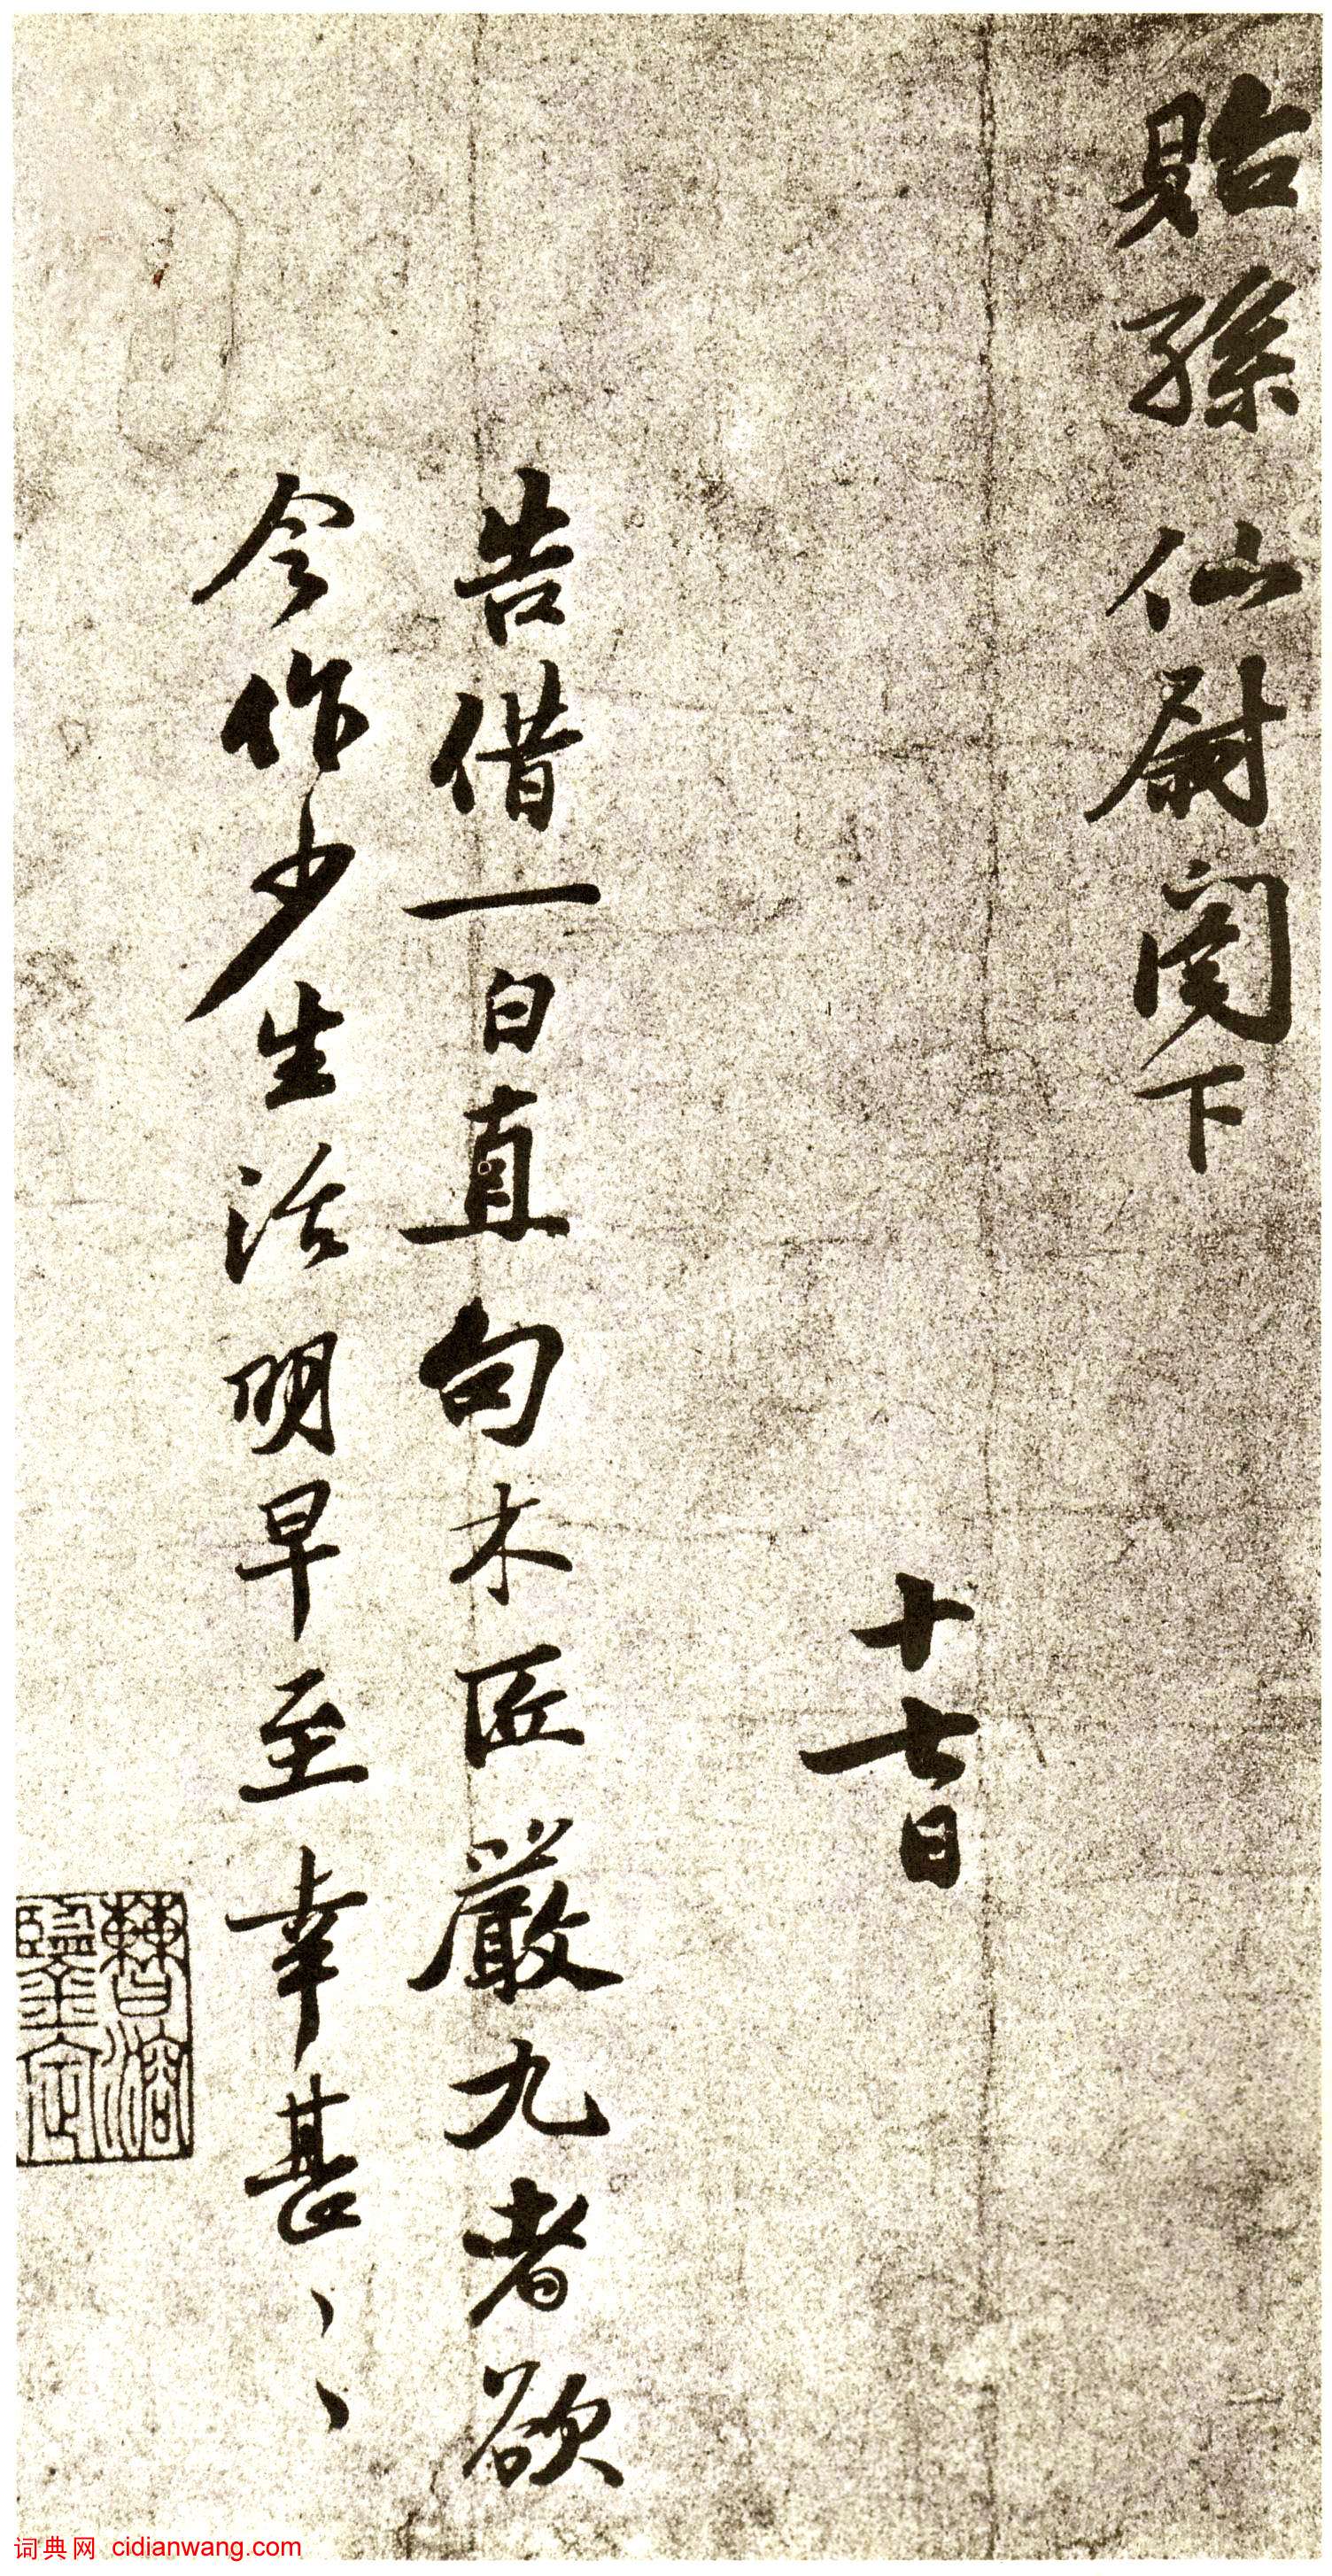 貽孫仙尉閣下
十七日
告借一白直句木匠嚴九者欲
令作少生活明早至幸甚〻〻
鑒定
词典网 cidianwang.com